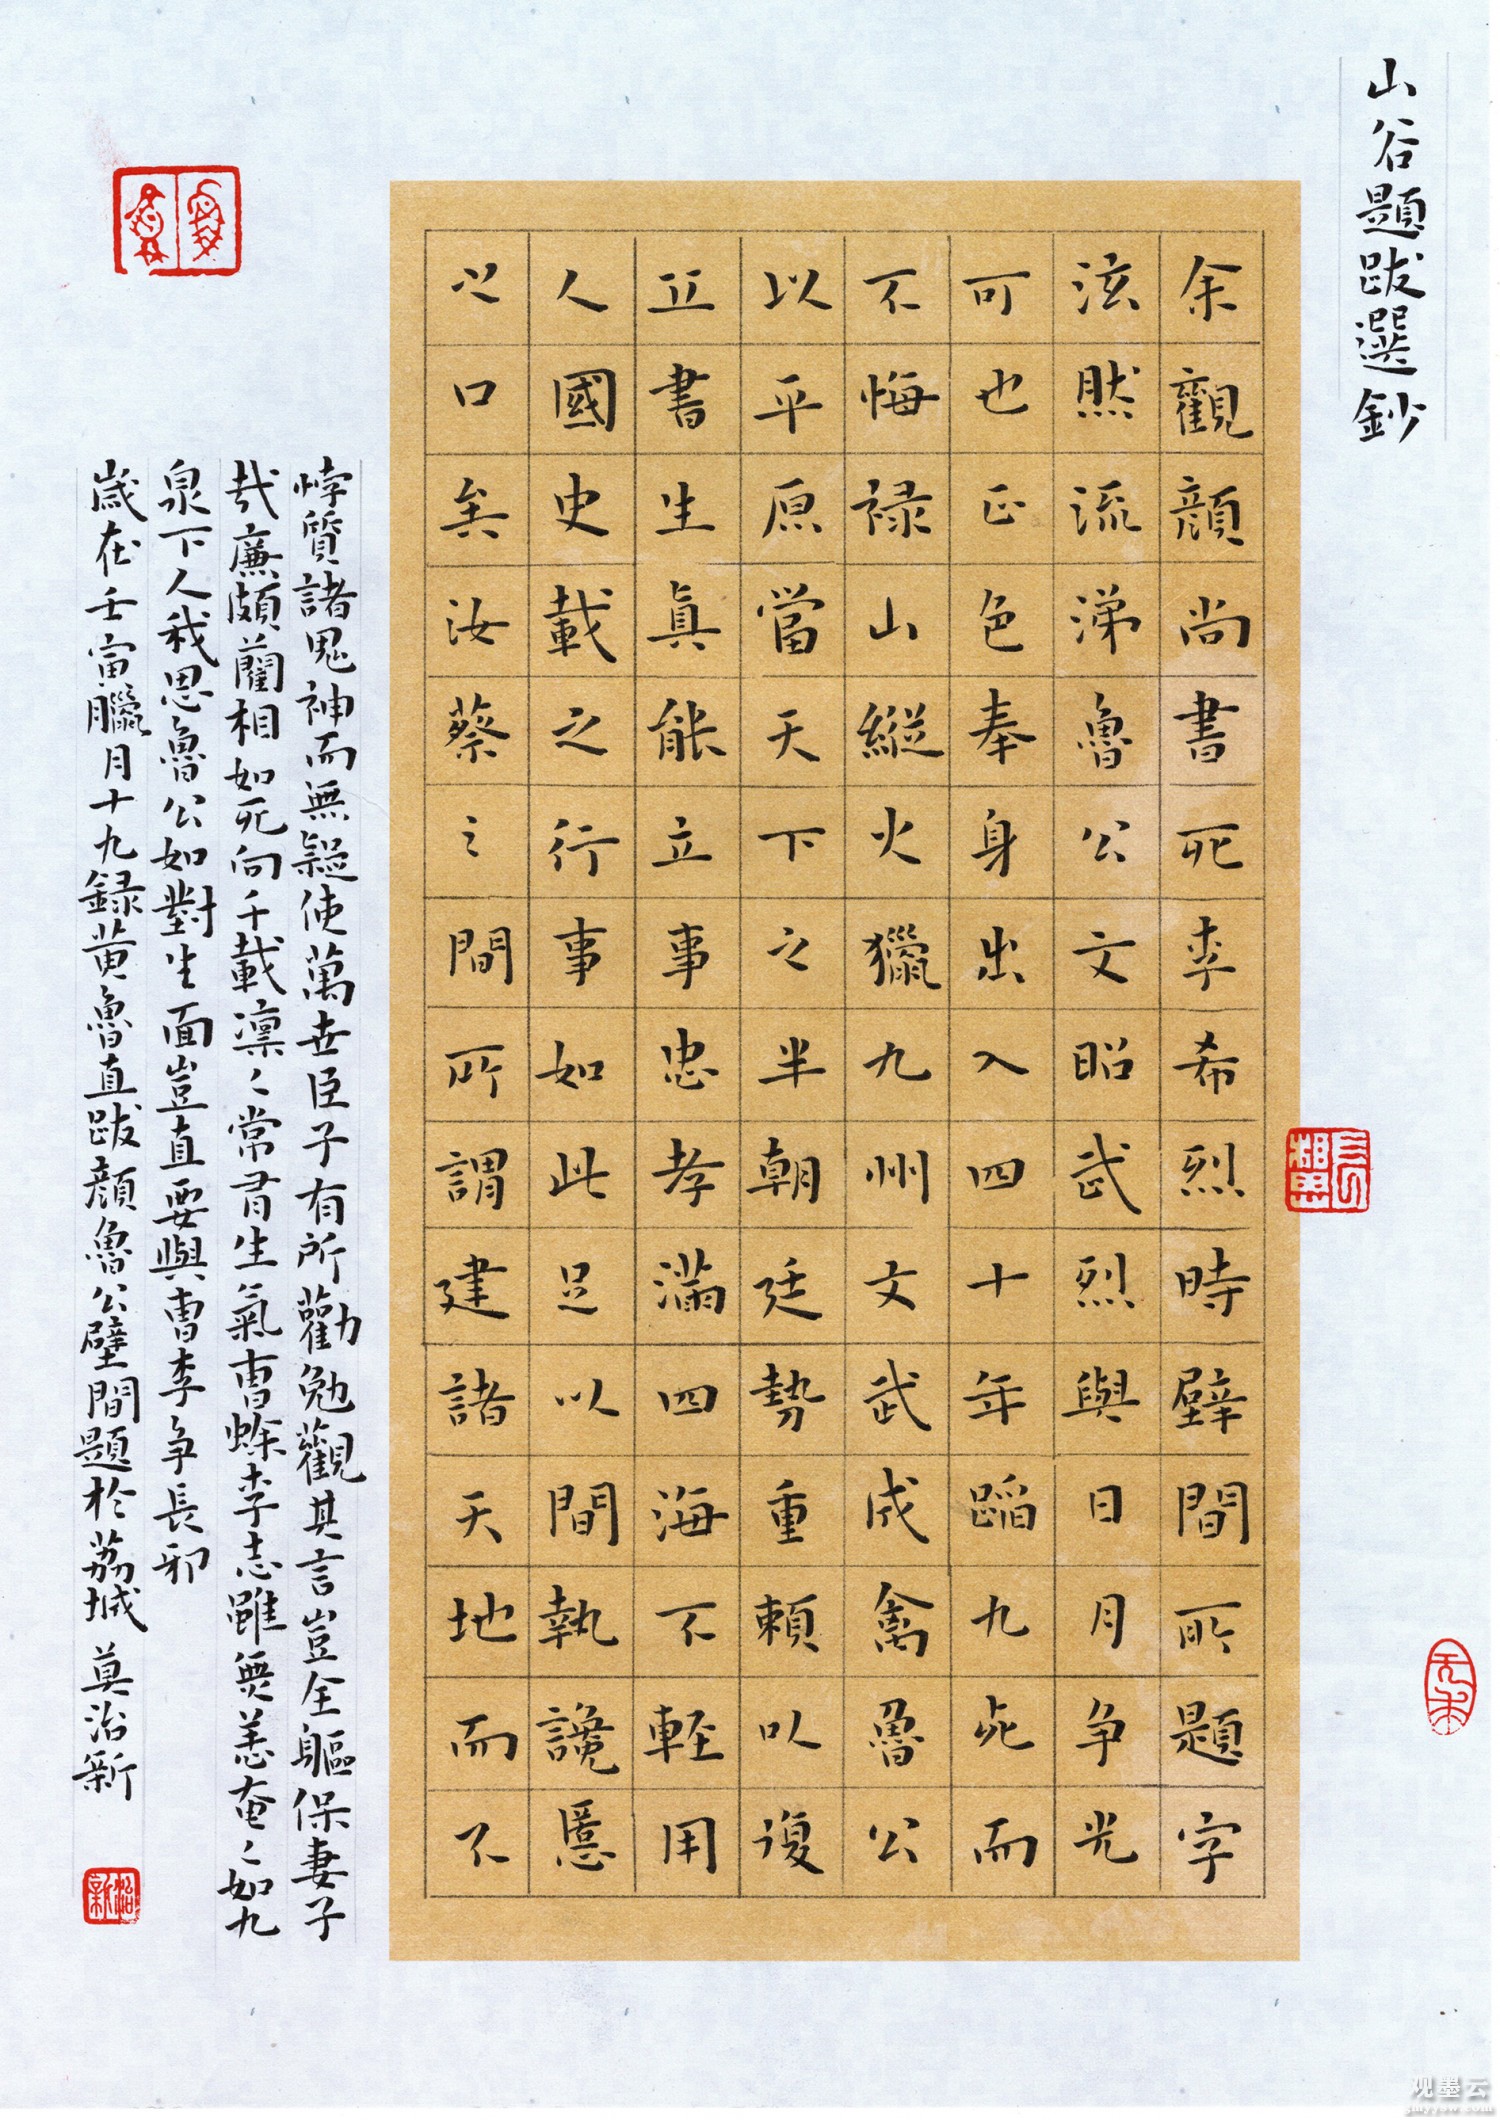 山谷題跋選鈔
余觀顏尚書死李希烈時壁間所題字
泫然流涕魯公文昭武烈與日月争光
可也正色奉身出入四十年蹈九死而
不悔禄山縱火獵九州文武成禽魯公
以平原當天下之半朝廷勢重賴以復
立書生真能立事忠孝滿四海不輕用
人國史載之行事如此足以間執讒慝
之口矣汝蔡之間所謂建諸天地而不
悖質諸鬼神而無疑使萬世臣子有所勸勉觀其言豈全軀保妻子
哉廉頗藺相如死向千載凜〻常有生氣曹蜍李志雖無恙奄〻如九
泉下人我思魯公如對生面豈直要與曹李争長邪
歲在壬寅臘月十九録黄魯直跋顏魯公壁間題於荔城 莫治新
治新
观墨云